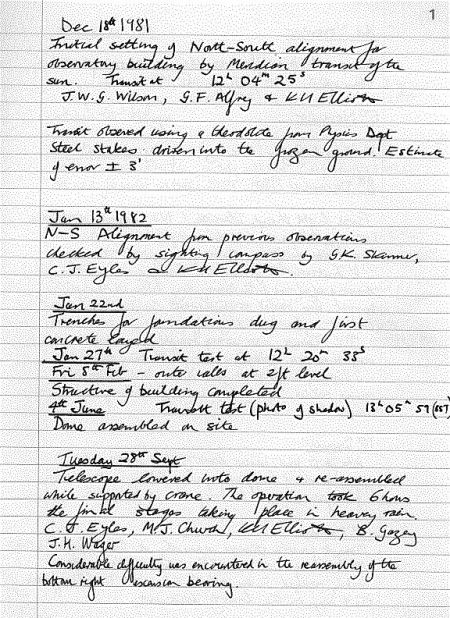 1
Dec 18th 1981
Initial setting of North-South alignment for
observatory building by Meridian transit of the
sun. Transit at 12h 04m 25s
J.W.G. Wilson, G.F. Alfrey & K H Elliott
Transit observed using a theodolite from Physics Dept
Steel stakes driven into the frozen ground! Estimate
of error ± 3'
Jan 13th 1982
N-S Alignment from previous observations
checked by sighting compass by G.K. Skinner,
C.J. Eyles & K H Elliott.
Jan 22nd
Trenches for foundations dug and first
concrete layed
Jan 27th Transit test at 12h 20m 38s
Fri 5th Feb - outer walls at 2ft level
Structure of building completed
4th June Transit test (photo of shadow) 13h 05m 57 (BST)
Dome assembled on site
Tuesday 28th Sept
Telescope lowered into dome & re-assembled
while supported by crane. The operation took 6 hours
the final stages taking place in heavy rain.
C. J. Eyles, M.J. Church, K H Elliott, B. Gazey
J.H. Wager
Considerable difficulty was encountered in the reassembly of the
bottom right ascension bearing.